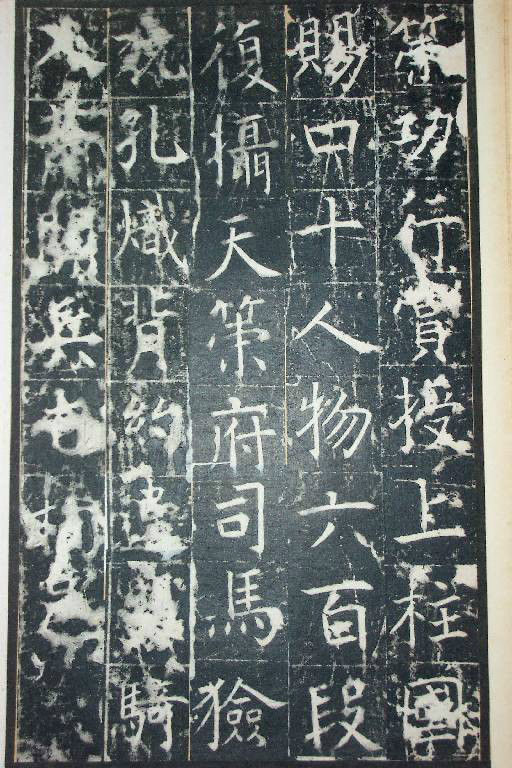 策功行賞授上柱國
賜口十人物六百段
復攝天策府司馬獫
狁孔熾背約騎
兵